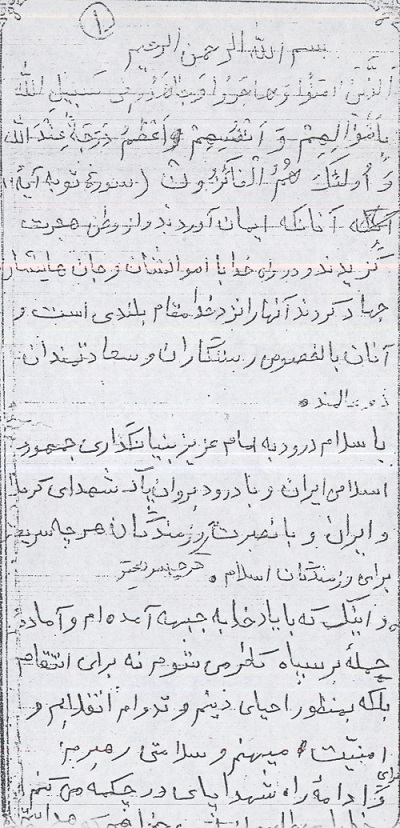 ۱
بسم الله الرحمن الرحیم
اَلَّذینَ امَنُوا وَ هاجَرُوا وَ جاهَدُوا فی سَبیلِ اللهِ
بِاَمْوالِهِمْ وَ اَنْفُسِهِمْ اَعْظَمُ دَرَجَةً عِنْدَ اللهِ
وَ اُولئِکَ هُمُ الْفائِزُونَ (سوره توبه آیهٔ
آنانکه ایمان آوردند و از وطن هجرت
گزیدند و در راه خدا با اموالشان و جان هایشان
جهاد کردند آنها را نزد خدا مقام بلندی است و
آنان بالخصوص رستگاران و سعادتمندان
با سلام درود به امام عزیز بنیانگذاری جمهور
اسلامی ایران و با درود بروان پاک شهدای کربلا
و ایران و با نصرت رزمندگان هر چه سریعتر
برای رزمندگان اسلام .
و اینک که با یاد خدا به جبهه آمده ام و آماده
حمله بر سپاه کفر می شوم نه برای انتقام
بلکه بمنظور احیای دینم و تداوم انقلابم و
امنیت میهنم و سلامتی رهبرم
و ادامهٔ راه شهدا پای در چکمه می کنم